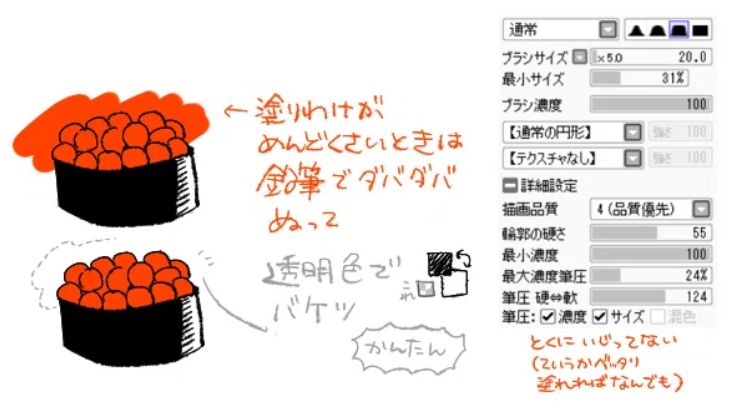 ← 塗りわけが
めんどくさいときは
鉛筆でダバダバ
ぬって
透明色で
バケツ
これ
かんたん
通常
ブラシサイズ ×5.0 20.0
最小サイズ 31%
ブラシ濃度 100
【通常の円形】 強さ 100
【テクスチャなし】 強さ 100
詳細設定
描画品質 4 (品質優先)
輪郭の硬さ 55
最小濃度 100
最大濃度筆圧 24%
筆圧 硬⇔軟 124
筆圧: 濃度 サイズ 混色
とくに いじってない
(ていうかベッタリ
塗れればなんでも)